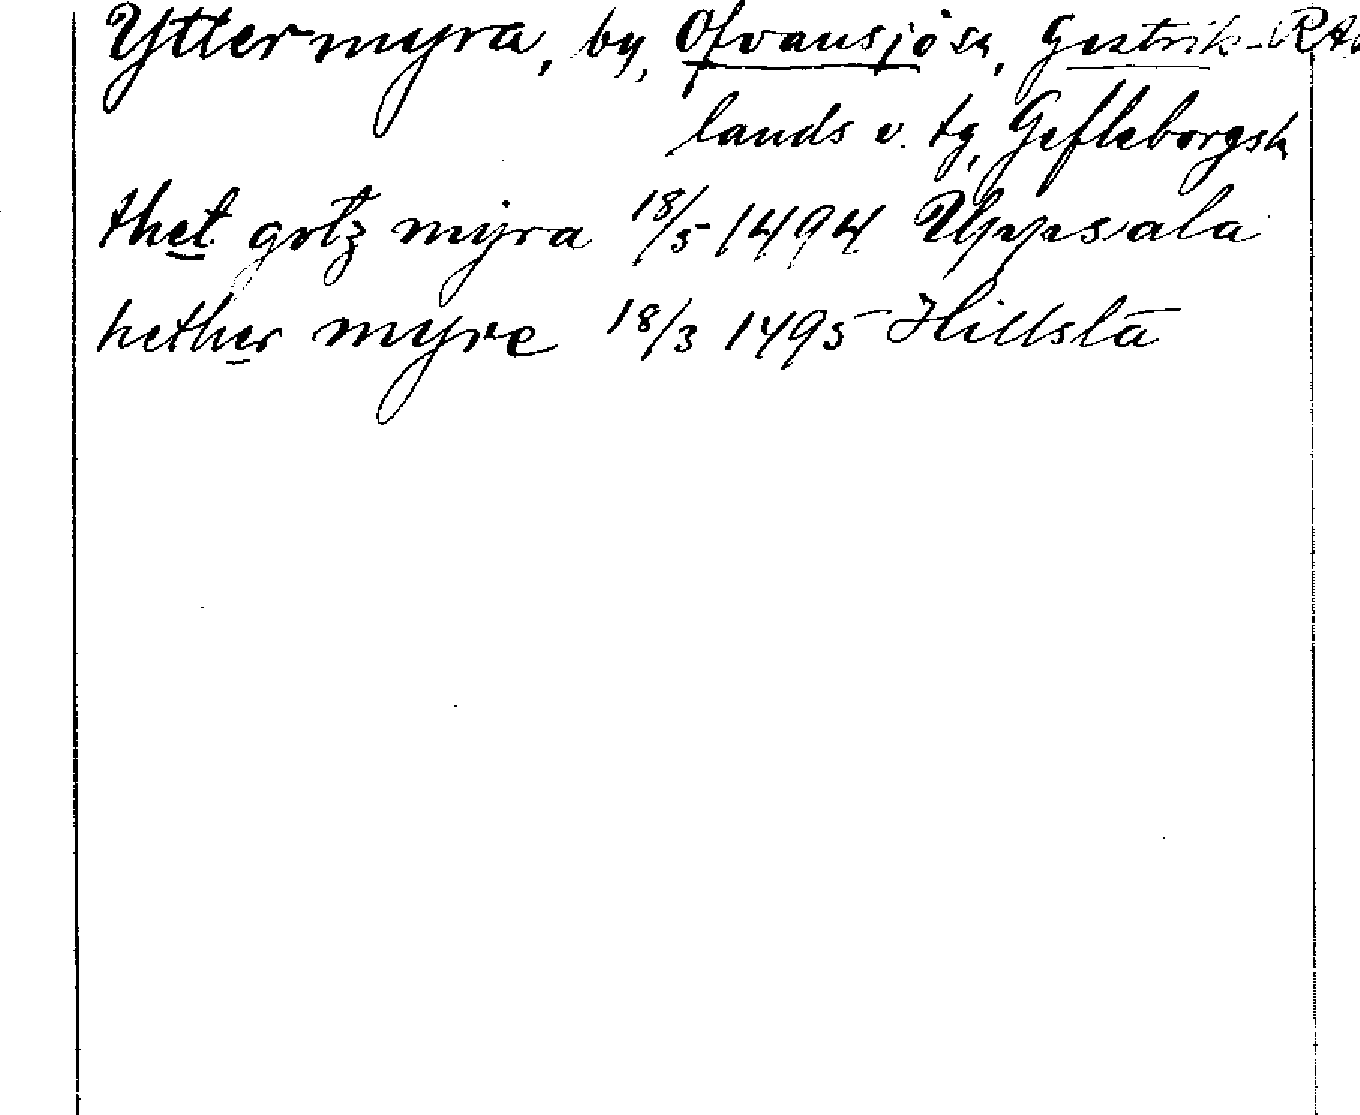 Yttermyra, by, Ofvansjö sn, Gestrik- RA
lands v. tg, Gefleborgs h
thet gotz myra 18/5 1494 Uppsala
hether myre 18/3 1495 Hillsta